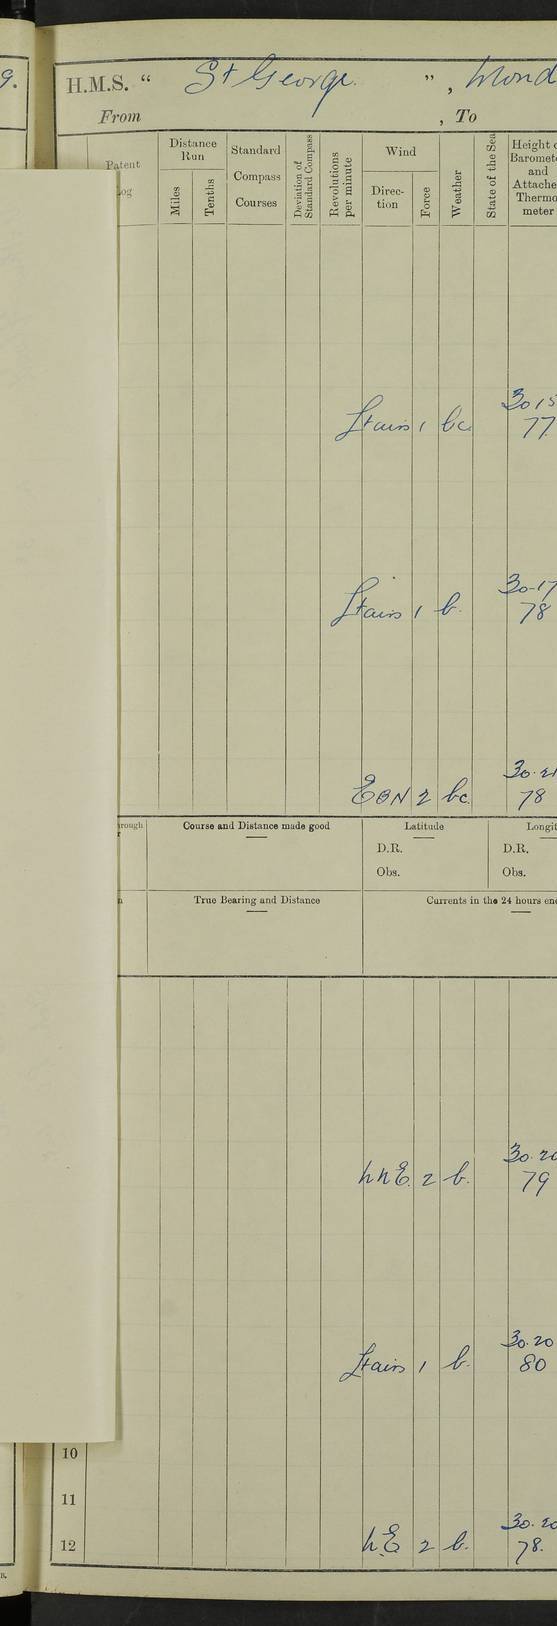 9.
H.M.S. “ St George. ”, Mond
From , To
Patent
og
Distance Run
Miles
Tenths
Standard Compass Courses
Deviation of Standard Compass
Revolutions per minute
Wind
Direc-tion
Force
Weather
State of the Sea
Height o
Baromet
and
Attache
Thermo
meter
30 15
Lt airs 1 bc. 77
30.17
Lt airs 1 b. 78
30.21
EBN 2 bc. 78
rough
Course and Distance made good
Latitude
D.R.
Obs.
Longit
D.R.
Obs.
True Bearing and Distance
Currents in the 24 hours end
30.20
NNE. 2 b. 79
30.20
Lt airs 1 b. 80
10
11
30.20
12 N.E 2 b. 78.